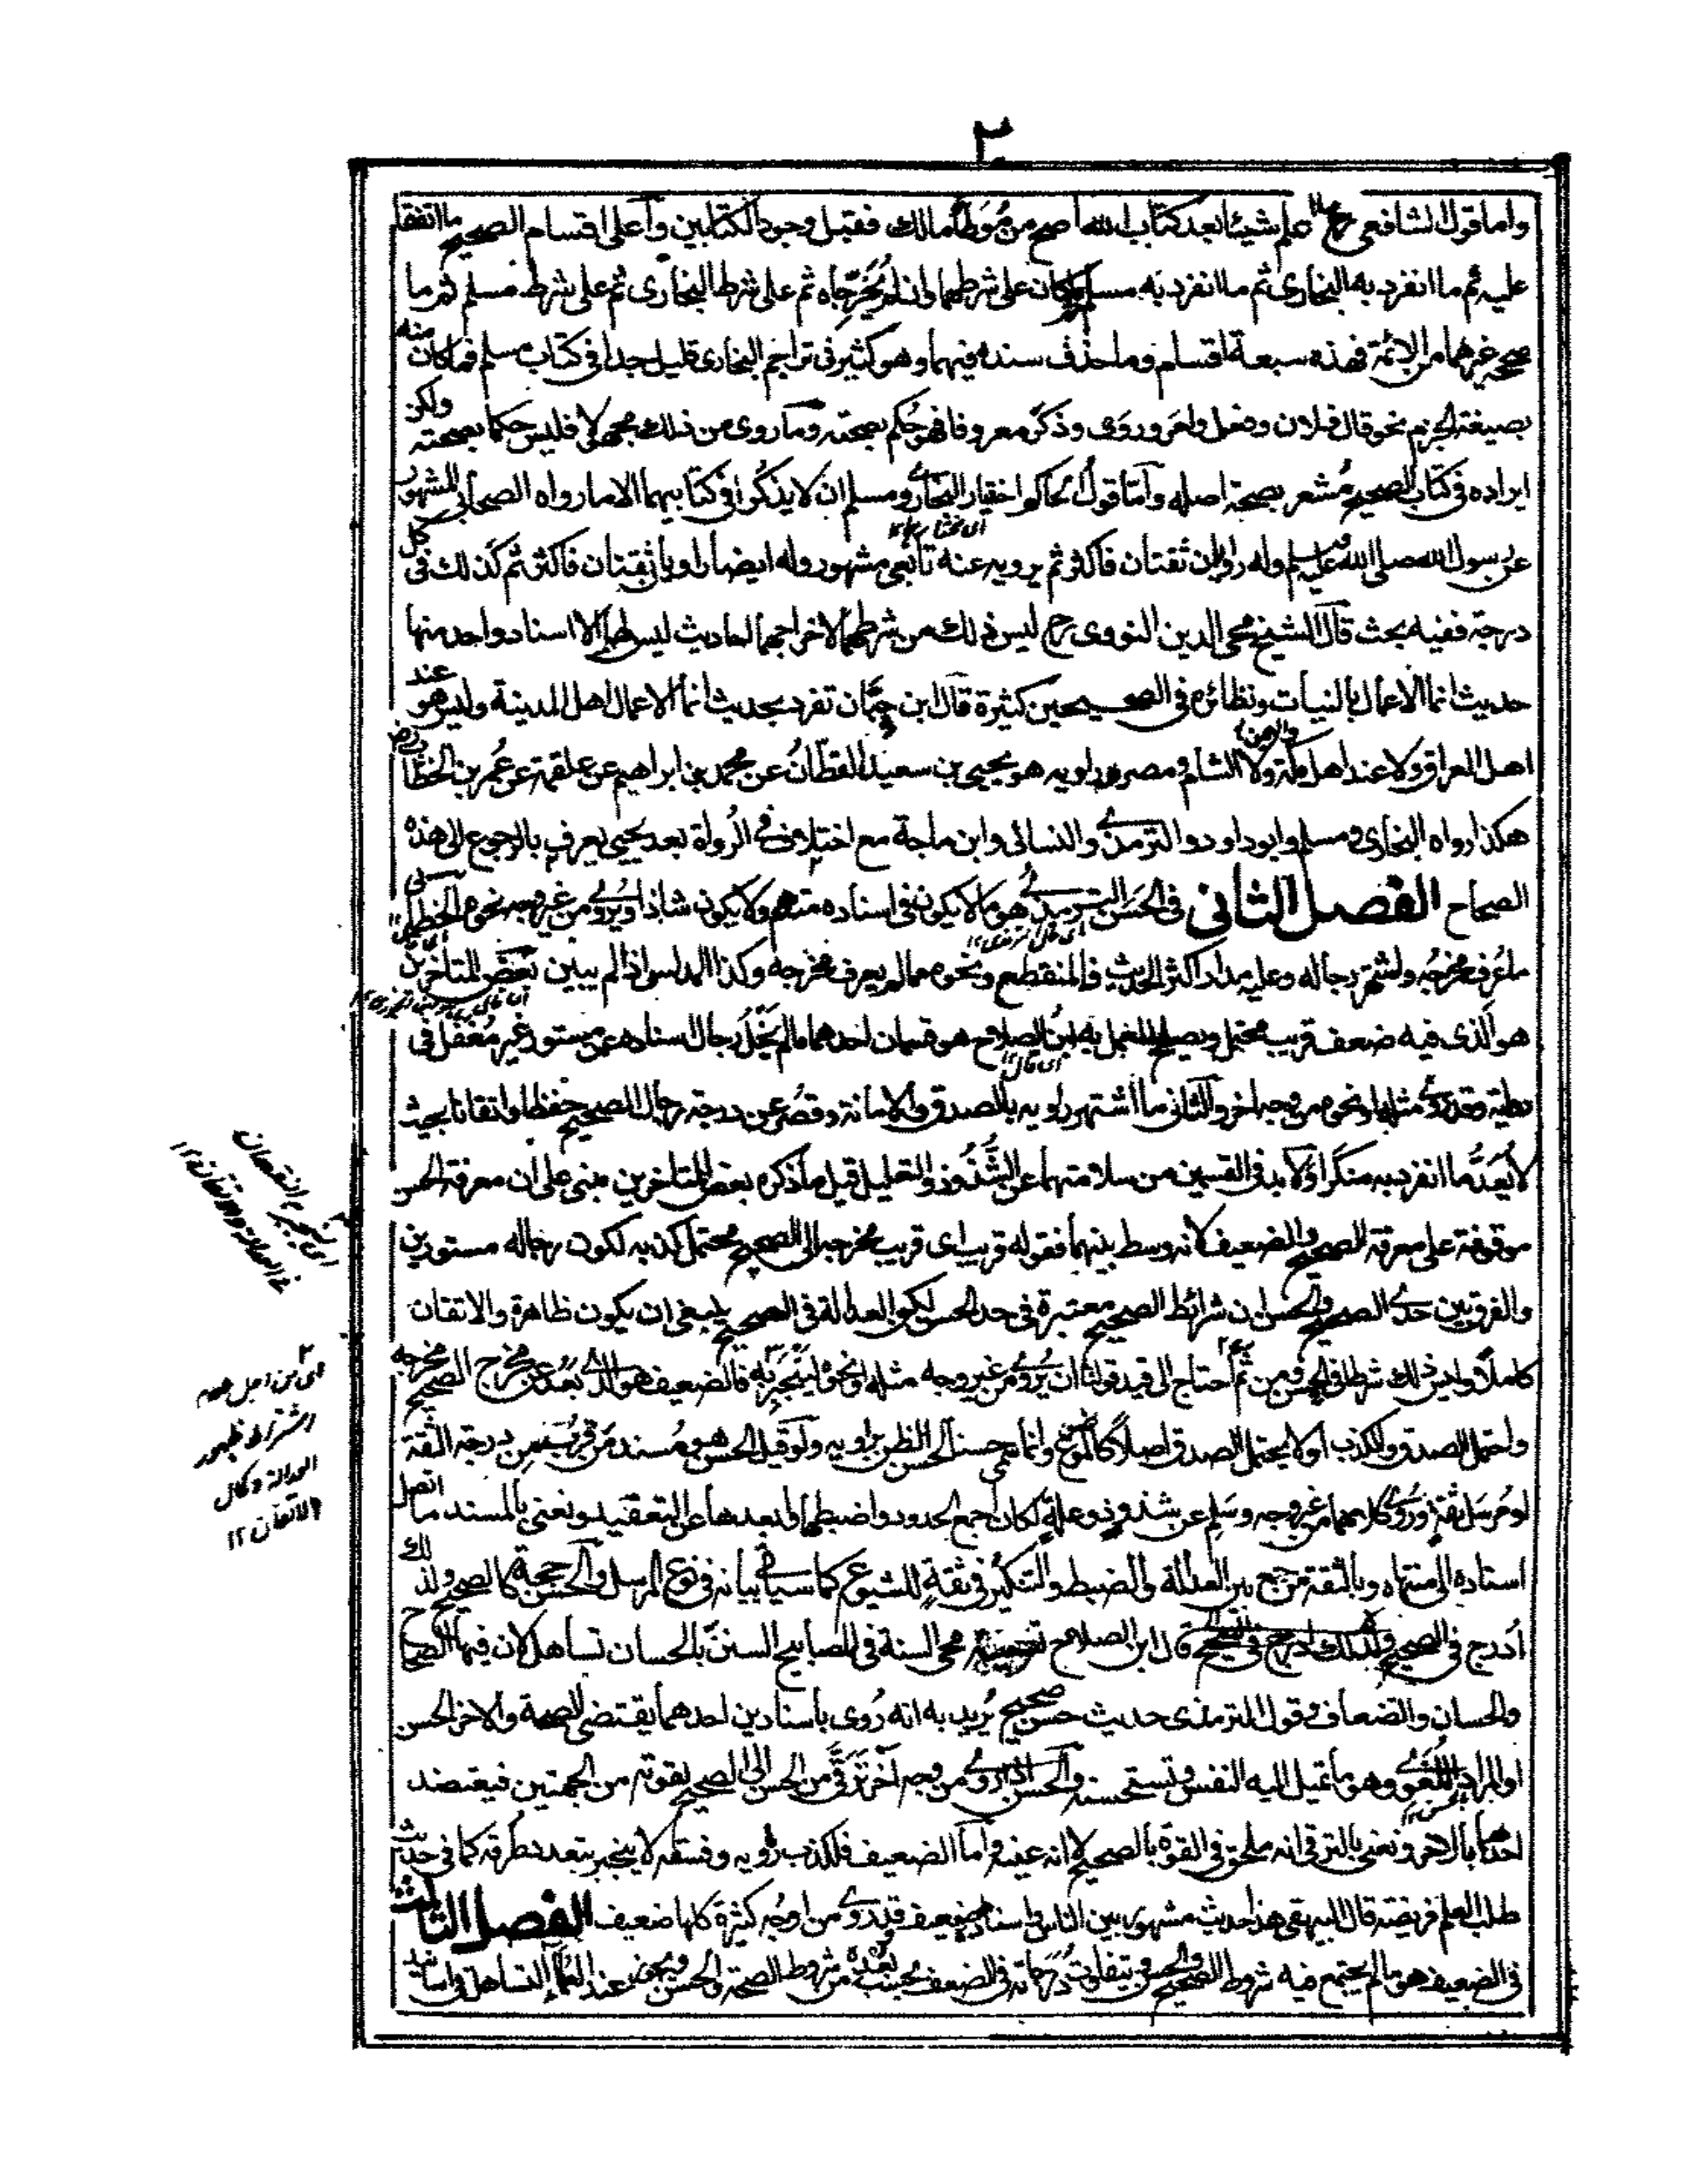 ٣
واما قول الشافعي رح ما اعلم شيئا بعد كتاب الله اصح من مُوَطّأ مالك فقبل وجود الكتابين وأعلى اقسام الصحيح ما اتفقا
عليه ثم ما انفرد به البخارى ثم ما انفرد به مسلم كان على شرطهما وان لم يُخَرِّجاه ثم على شرط البخارى ثم على شرط مسلم ثم ما
صححه غيرهما من الائمة فهذه سبعة اقسام وما حذف سنده فيهما وهو كثير فى تراجم البخارى قليل جدا فى كتاب مسلم فما كان منه
بصيغة الجزم نحو قال فلان وفعل وامر وروى وذكر معروفا فهو حُكم بصحته وما روى من ذلك مجهولا فليس حكما بصحته ولكن
ايراده فى كتاب الصحيح مُشعر بصحة اصله وأمّا قول الحاكم اختيار البخارى ومسلم ان لا يذكرا فى كتابيهما الا ما رواه الصحابى المشهور
عن رسول الله صلى الله عليه وسلم وله راويان ثقتان فاكثر ثم يرويه عنه تابعى مشهور وله ايضا راويان ثقتان فاكثر ثم كذلك فى كل
درجة ففيه بحث قال الشيخ محى الدين النووى رح ليس ذلك من شرطهما لاخراجهما احاديث ليس لها الا اسناد واحد منها
حديث انما الاعمال بالنيات ونظائره فى الصحيحين كثيرة قال ابن حِبّان تفرد بحديث انما الاعمال اهل المدينة وليس هو عند
اهل العراق ولا عند اهل مكة ولا الشام ومصر وراويه هو يحيى بن سعيد القطّانُ عن محمد بن ابراهيم عن علقمة عن عُمر بن الخطاب رض
هكذا رواه البخارى ومسلم وابوداود والترمذى والنسائى وابن ماجة مع اختلاف فى الرُواة بعد يحيى يعرف بالرجوع الى هذه
الصحاح الفصل الثانى فى الحَسَن الترمذىُّ هو ما لا يكون فى اسناده متهم ولا يكون شاذا ويُروٰى من غير وجه نحوه الخطابى
ما عُرف مخرجُه واشتهر رجاله وعليه مدار اكثر الحديث فالمنقطع ونحوه مما لم يعرف مخرجه وكذا المدلس اذا لم يبين بعض المتأخرين
هو الذى فيه ضعف قريب محتمل ويصلح للعمل به ابن الصلاح هو قسمان احدهما ما لم يَخْلُ رجال اسناده عن مستور غير مُغفل فى
روايته وقد رُوى مثله او نحوه من وجه اخر والثانى ما اشتهر راويه بالصدق والامانة وقصُر عن درجة رجال الصحيح حفظا واتقانا بحيث
لا يُعَدُّ ما انفرد به منكرا ولا بد فى القسمين من سلامتهما عن الشُّذُوذ والتعليل قيل ما ذكره بعض المتاخرين مبنى على ان معرفة الحسن
موقوفة على معرفة الصحيح والضعيف لانه وسط بينهما فقوله قريب اى قريب مخرجه الى الصحيح محتمل كذبه لكون رجاله مستورين
والفرق بين حدى الصحيح والحسن ان شرائط الصحيح معتبرة فى حد الحسن لكن العدالة فى الصحيح ينبغى ان يكون ظاهرة والاتقان
كاملا وليس ذلك شرطا فى الحسن ومن ثَمَّ احتاج الى قيد قولنا ان يُروٰى من غير وجه مثله او نحوه ليَنْجَبِرَ به فالضعيف هو الذى بَعُدَ عن مخرج الصحيح مخرجه
واحتمل الصدق والكذب او لا يحتمل الصدق اصلا كالموضوع وانما سُمى حسنا لحسن الظن براويه ولو قيل الحسن هو مُسند مَن قَرُبَ من درجة الثقة
او مُرسَل ثقة ورُوى كلاهما من غير وجه وسَلِم عن شذوذ وعلة لكان اجمع الحدود واضبطها وابعدها عن التعقيد ونعنى بالمسند ما اتصل
اسناده الى منتهاه وبالثقة من جمع بين العدالة والضبط والتنكير فى ثقة للشيوع كما سياتى بيانه فى نوع المرسل والحسن حجة كالصحيح ولذلك
أدرج فى الصحيح قال ابن الصلاح تسمية محى السنة فى المصابيح السننَ بالحسان تساهل لان فيها الصحاح
والحسان والضعاف وقول الترمذى حديث حسن صحيح يُريد به انه رُوى باسنادين احدهما يقتضى الصحة والاخر الحسن
او المراد اللُغَوى وهو ما تميل اليه النفس وتستحسنه والحسن اذا رُوى من وجه آخر تَرَقّى من الحسن الى الصحيح لقوته من الجهتين فيعتضد
احدهما بالاخر ونعنى بالترقى انه ملحق فى القوة بالصحيح لا انه عينه وأما الضعيف فلكذب راويه وفسقه لا ينجبر بتعدد طُرقه كما فى حديث
طلب العلم فريضة قال البيهقى هذا حديث مشهور بين الناس واسناده ضعيف وقد رُوى من اوجُه كثيرة كلها ضعيف الفصل الثالث
فى الضعيف هو ما لم يجتمع فيه شروط الصحيح والحسن وتتفاوت درجاته فى الضعف بحسب بُعده من شروط الصحة والحسن ويجوز عند العلماء التساهل فى اسانيد
اى ينجبر النقصان
فى العدالة والاتقان ١٢
٢
اى من اجل عدم
اشتراط ظهور
العدالة وكمال
الاتقان ١٢